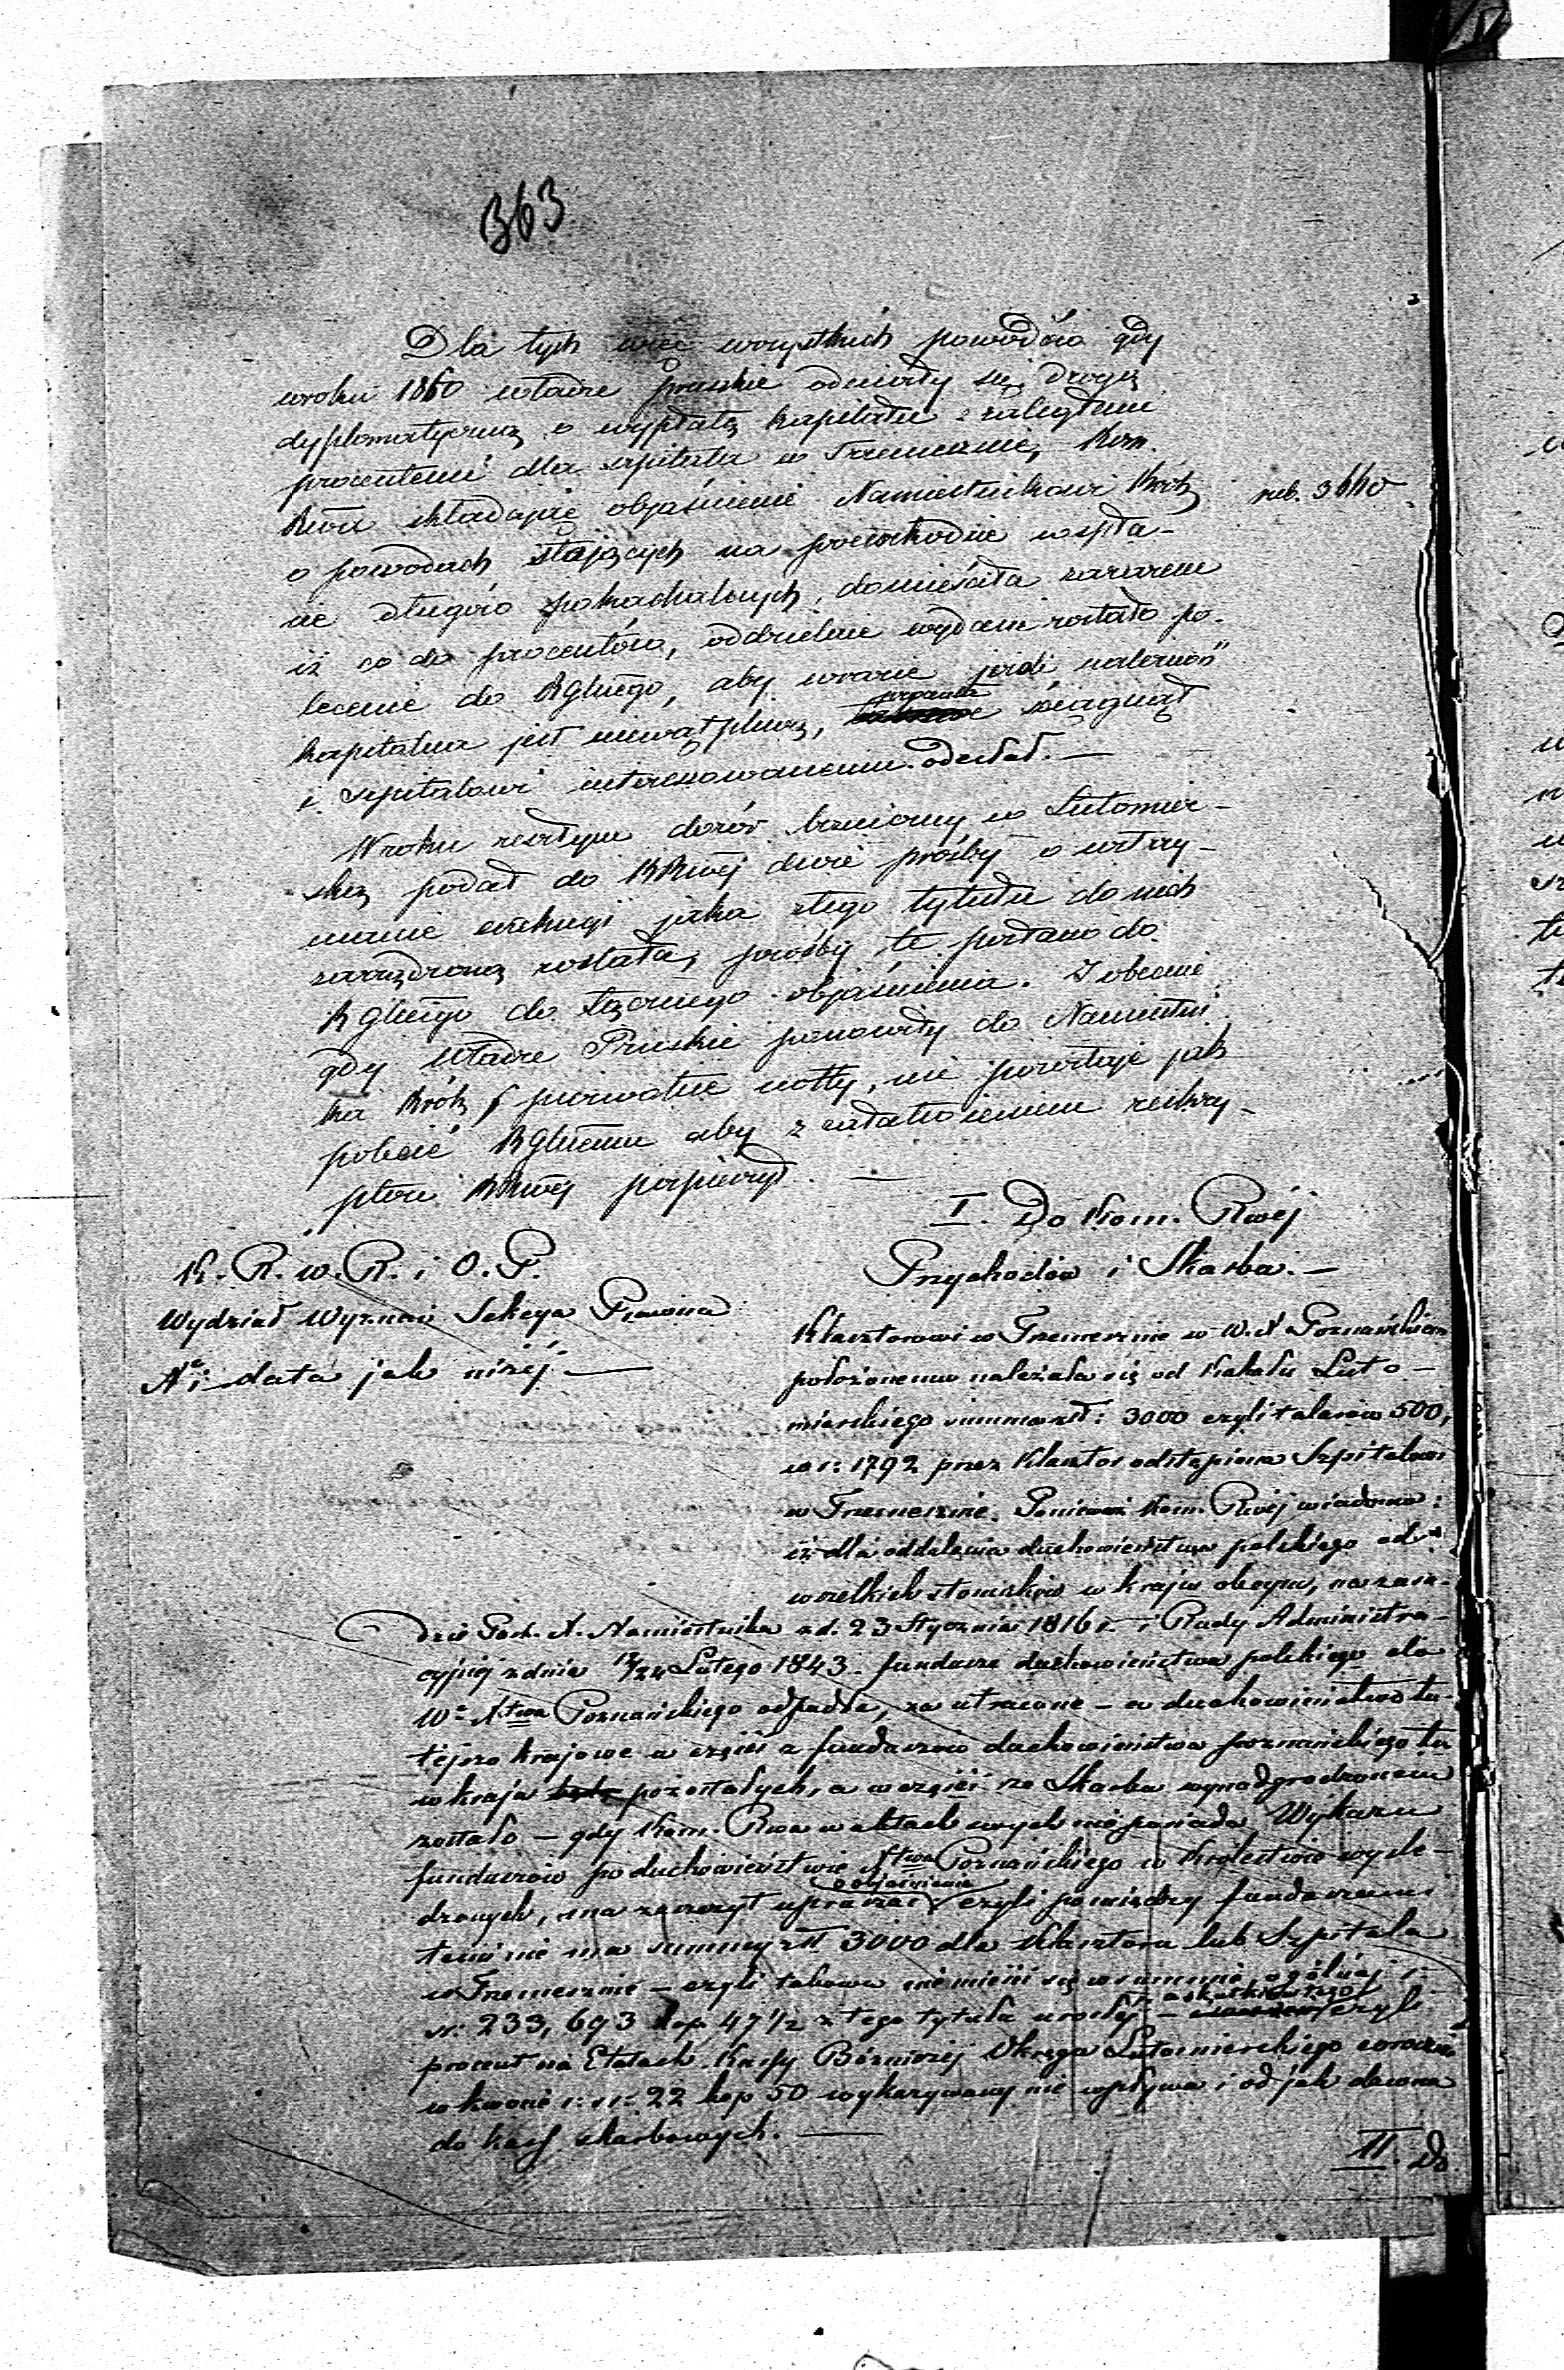 363
Dla tych więc wszystkich powodów gdy
wroku 1860 władze pruskie odniosły się drogą
dyplomatyczną o wypłatę kapitału z zaległemi
procentami dla szpitala w Trzemesznie, Kom.
Rwa składając objaśnienie Namiestnikowi Król
rub. 3660
o powodach stojących na przeszkodzie w spła-
cie długów pokahalnych, domieściła zarazem
iż co do procentów, oddzielnie wydane zostało po-
lecenie do RGłnego, aby wrazie jeżeli należność
kapitalna jest niewątpliwą, ściągnął
i szpitalowi interesowanemu odesłał. —
Wroku zeszłym dozór bożniczy w Lutomier-
sku podał do KRwej dwie prośby o wstrzy-
manie exekucyi jaka ztego tytułu do nich
zarządzoną została, prośby te posłano do
RGłnego do łącznego objaśnienia. I obecnie
gdy Władze Pruskie ponowiły do Namiestni
ka Król pierwotne notty, nie pozostaje jak
polecić RGłnemu aby z załatwieniem reskry-
ptów KRwej pospieszył. —
K. R. w. R. i O. P.
Wydział Wyznań Sekcya Prawna
No i data jak niżej. —
I. Do Kom. Rwéj
Przychodów i Skarbu. —
Klasztorowi w Trzemesznie w W. X Poznańskiem
położonemu należała się od Kahału Luto-
mierskiego summa zł: 3000 czyli talarów 500,
w r: 1792 przez Klasztor odstąpiona Szpitalowi
w Trzemesznie. Ponieważ Kom. Rwéj wiadomo:
iż dla oddalenia duchowieństwa polskiego od
wszelkich stosunków w kraju obcym, na zasa-
dzie Post. X. Namiestnika z d. 23 Stycznia 1816 r. i Rady Administra-
cyjnéj z dnia 12/24 Lutego 1843. fundusze duchowieństwa polskiego do
Wo Xtwa Poznańskiego odpadłe, za utracone – a duchowieństwo tu-
tejszo krajowe w części z funduszów duchowieństwa poznańskiego tu
w kraju pozostałych, a w części ze Skarbu wynadgrodzonem
zostało – gdy Kom. Rwa w aktach swych nie posiada Wykazu
funduszów po duchowieństwie Xtwa Poznańskiego w Królestwie wyśle-
dzonych, ma zaszczyt upraszać o objaśnienie czyli pomiędzy funduszami
temi nie ma summy zł 3000 dla Klasztoru lub Szpitala
w Trzemesznie – czyli takowa niemieści się w summie ogólnéj r.
sr: 233,693 kop 47 1/2 z tego tytułu urosłéj – a skutkiem tego czyli
procent na Etatach Kassy Bóżniczéj Okręgu Lutomierskiego corocznie
w kwocie r: sr: 22 kop 50 wykazywany nie wpływa i od jak dawna
do kass skarbowych. —
II. Do